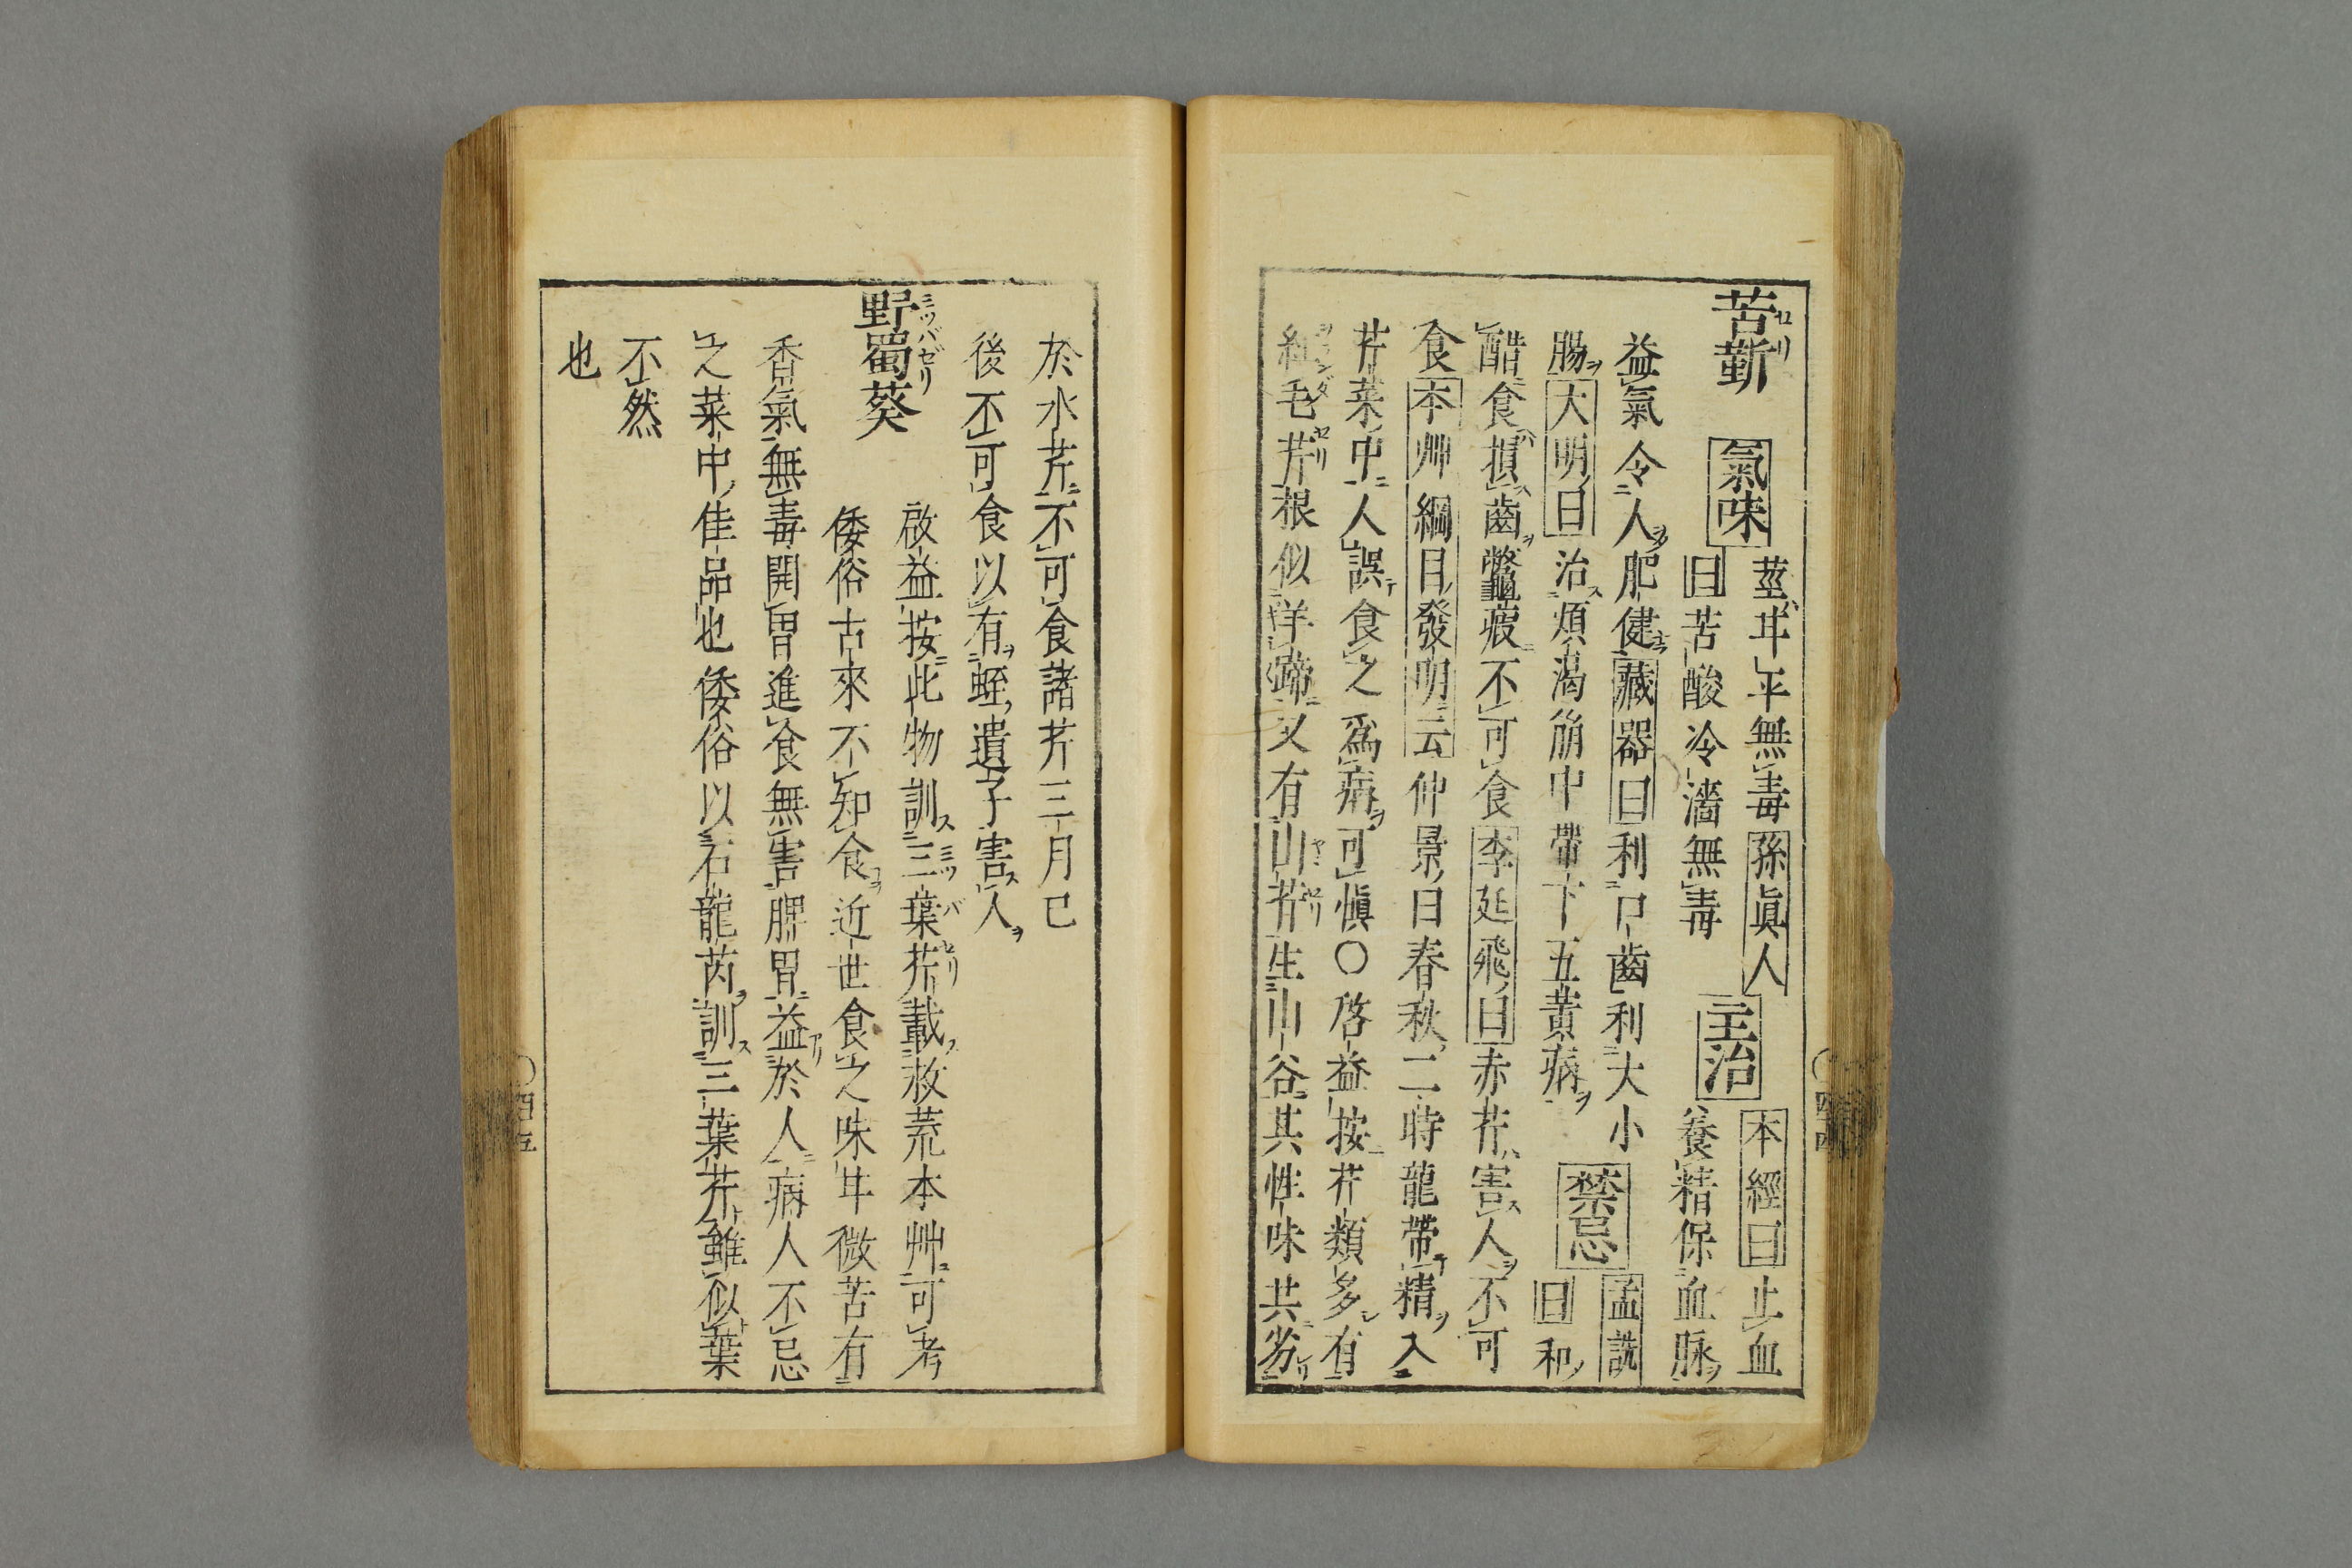 苦蘄 氣味 莖甘平無毒 孫眞人
曰 苦酸冷濇無毒 主治 本經曰 止血
養精保血脉
益氣令人肥健 藏器曰 利口齒利大小
腸 大明曰 治煩渴崩中帶下五黃病 禁忌 孟詵
曰 和
醋食損齒鱉瘕不可食 李廷飛曰 赤芹害人不可
食 本艸綱目發明云 仲景曰春秋二時龍帶精入
芹菜中人誤食之爲病可愼〇啓益按芹類多有
毛芹根似羊蹄又有山芹生山谷其性味共劣
於水芹不可食諸芹三月已
後不可食以有蛭遺子害人
野蜀葵 啟益按此物訓三葉芹載救荒本艸可考
倭俗古來不知食近世食之味甘微苦有
香氣無毒開胃進食無害脾胃益於人病人不忌
之菜中佳品也倭俗以石龍芮訓三葉芹雖似葉
不然
也
セリ
ミツバゼリ
ミツバセリ
ヤマゼリ
四五